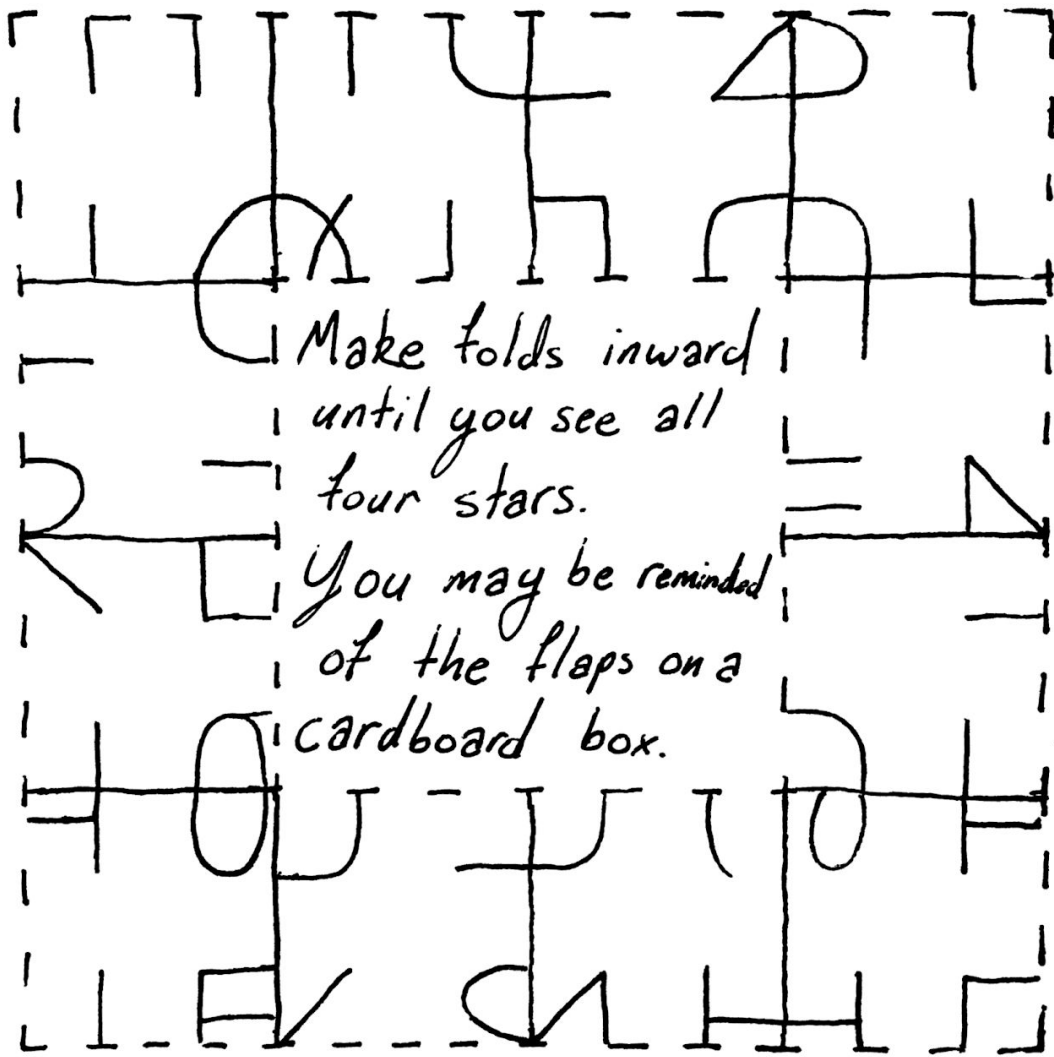 Make folds inward
until you see all
four stars.
You may be reminded
of the flaps on a
cardboard box.